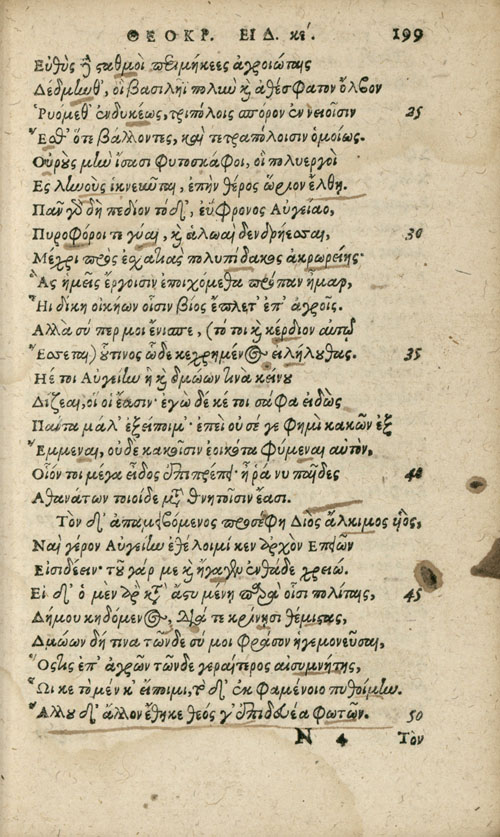 ΘΕΟΚΡ. ΕΙΔ. κέ. 199
Εὐθὺς ἢ σταθμοὶ περιμήκεες ἀγροιώταις
Δέδμηνθ᾽, οἳ βασιλῆϊ πολὺν καὶ ἀθέσφατον ὄλβον
Ῥυόμεθ᾽ ἐνδυκέως, τριπόλοις σπόρον ἐν νειοῖσιν 25
Ἔσθ᾽ ὅτε βάλλοντες, καὶ τετραπόλοισιν ὁμοίως.
Οὔρους μὴν ἴσασι φυτοσκάφοι, οἱ πολυεργοὶ
Ἐς ληνοὺς ἱκνεῦνται, ἐπὴν θέρος ὥριον ἔλθῃ.
Πᾶν γὰρ δὴ πεδίον τόδ᾽, ἐΰφρονος Αὐγείαο,
Πυροφόροι τε γύαι, καὶ ἀλωαὶ δενδρήεσσαι, 30
Μέχρι πρὸς ἐσχατιὰς πολυπίδακος ἀκρωρείης·
Ἃς ἡμεῖς ἔργοισιν ἐποιχόμεθα πρόπαν ἦμαρ,
Ἥ τι δίκη οἰκήων οἷσιν βίος ἔπλετ᾽ ἐπ᾽ ἀγροῖς.
Ἀλλὰ σύ περ μοι ἔνισπε, (τό τοι καὶ κέρδιον αὐτῷ
Ἔσσεται) οὗτινος ὧδε κεχρημένος εἰλήλυθας. 35
Ἠέ τοι Αὐγείην ἢ καὶ δμώων τινὰ κείνου
Δίζεαι, οἵ οἱ ἔασιν· ἐγὼ δέ κέ τοι σάφα εἰδὼς
Πάντα μάλ᾽ ἐξείποιμ᾽· ἐπεὶ οὐ σέ γε φημὶ κακῶν ἐξ
Ἔμμεναι, οὐδὲ κακοῖσιν ἐοικότα φύμεναι αὐτὸν,
Οἷόν τοι μέγα εἶδος ἐπιπρέπει· ἦ ῥά νυ παῖδες 40
Ἀθανάτων τοιοίδε μετὰ θνητοῖσιν ἔασι.
Τὸν δ᾽ ἀπαμειβόμενος προσέφη Διὸς ἄλκιμος υἱὸς,
Ναὶ γέρον Αὐγείην ἐθέλοιμί κεν ἀρχὸν Ἐπειῶν
Εἰσιδέειν· τοῦ γάρ με καὶ ἤγαγεν ἐνθάδε χρειώ.
Εἰ δ᾽ ὁ μὲν ἂρ κατ᾽ ἄστυ μένῃ παρὰ οἷσι πολίταις, 45
Δήμου κηδόμενος, διά τε κρίνῃσι θέμιστας,
Δμώων δή τινα τῶνδε σύ μοι φράσον ἡγεμονεῦσαι,
Ὅστις ἐπ᾽ ἀγρῶν τῶνδε γεραίτερος αἰσυμνήτης,
Ὧι κε τὸ μέν κ᾽ εἴποιμι, τὸ δ᾽ ἐκ φαμένοιο πυθοίμην.
Ἄλλου δ᾽ ἄλλον ἔθηκε θεὸς γ᾽ ἐπιδευέα φωτῶν. 50
N 4 Τὸν